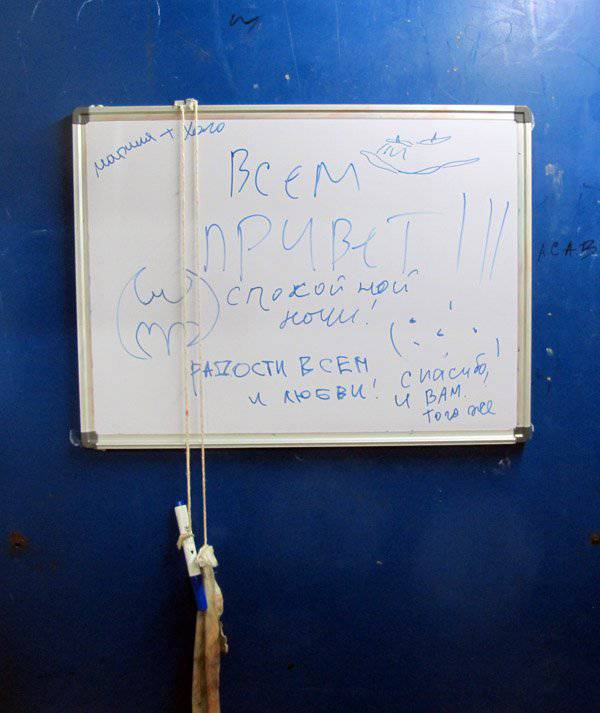 ВСЕМ
ПРИВЕТ!!!
СПОКОЙНОЙ
НОЧИ!
РАДОСТИ ВСЕМ
И ЛЮБВИ!
спасибо,
И ВАМ.
того же
A.C.A.B